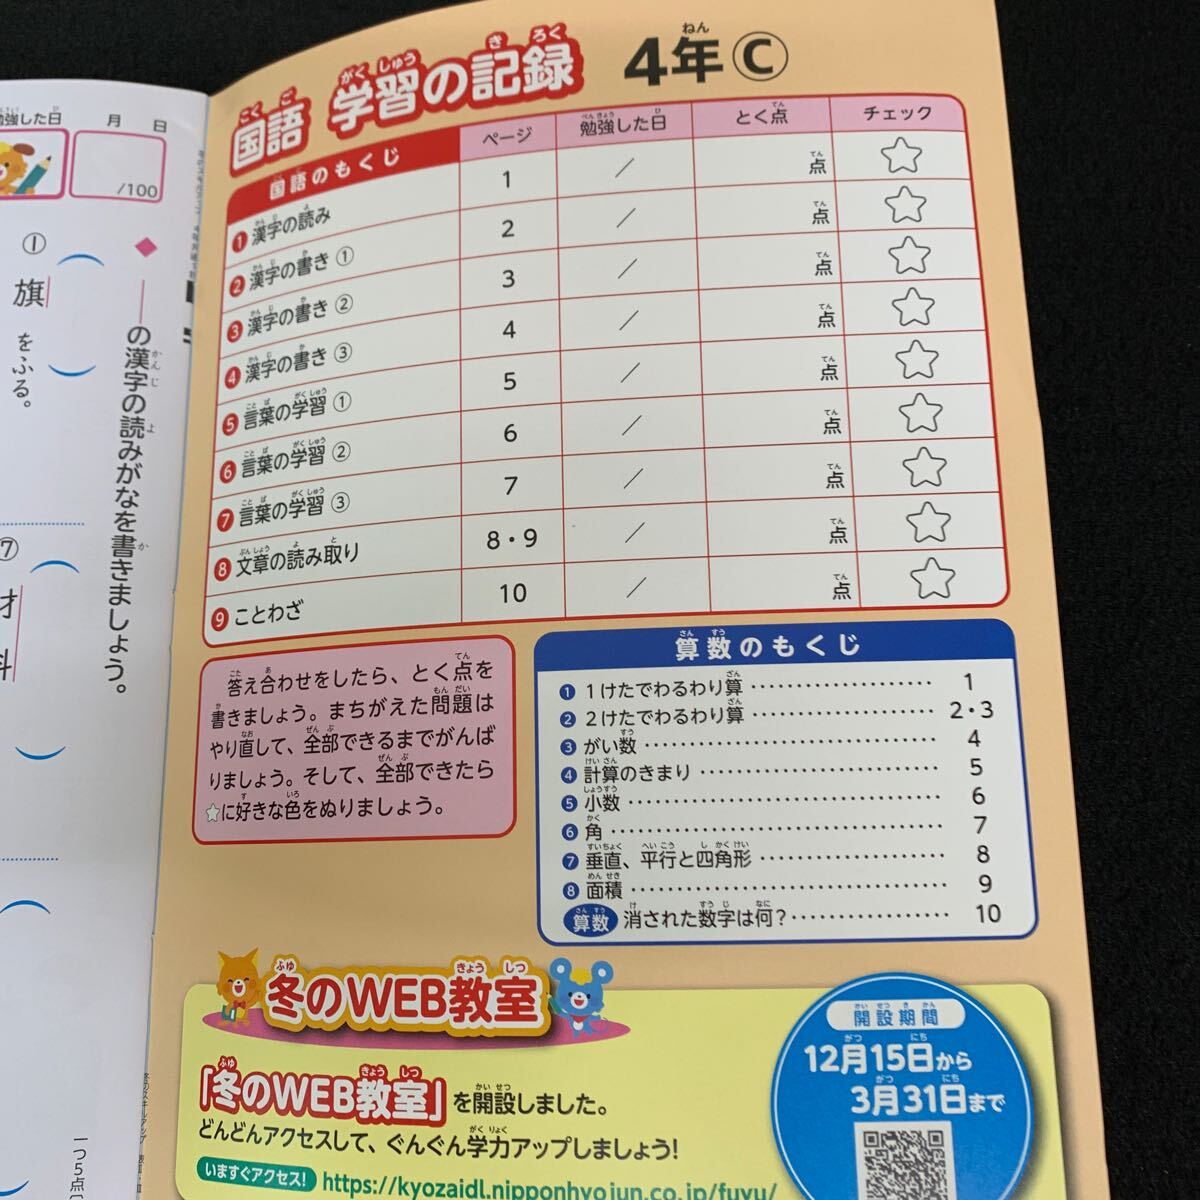 国語 学習の記録 4年Ⓒ
国語のもくじ ページ 勉強した日 とく点 チェック
❶漢字の読み 1 / 点 ☆
❷漢字の書き① 2 / 点 ☆
❸漢字の書き② 3 / 点 ☆
❹漢字の書き③ 4 / 点 ☆
❺言葉の学習① 5 / 点 ☆
❻言葉の学習② 6 / 点 ☆
❼言葉の学習③ 7 / 点 ☆
❽文章の読み取り 8・9 / 点 ☆
❾ことわざ 10 / 点 ☆
答え合わせをしたら、とく点を
書きましょう。まちがえた問題は
やり直して、全部できるまでがんば
りましょう。そして、全部できたら
☆に好きな色をぬりましょう。
算数のもくじ
❶1けたでわるわり算 1
❷2けたでわるわり算 2・3
❸がい数 4
❹計算のきまり 5
❺小数 6
❻角 7
❼垂直、平行と四角形 8
❽面積 9
算数 消された数字は何? 10
冬のWEB教室
「冬のWEB教室」を開設しました。
どんどんアクセスして、ぐんぐん学力アップしましょう!
いますぐアクセス! https://kyozaidl.nipponhyojun.co.jp/fuyu/
開設期間
12月15日から
3月31日まで
勉強した日 月 日
/100
◆――の漢字の読みがなを書きましょう。
① 旗をふる。
⑦
一つ5点